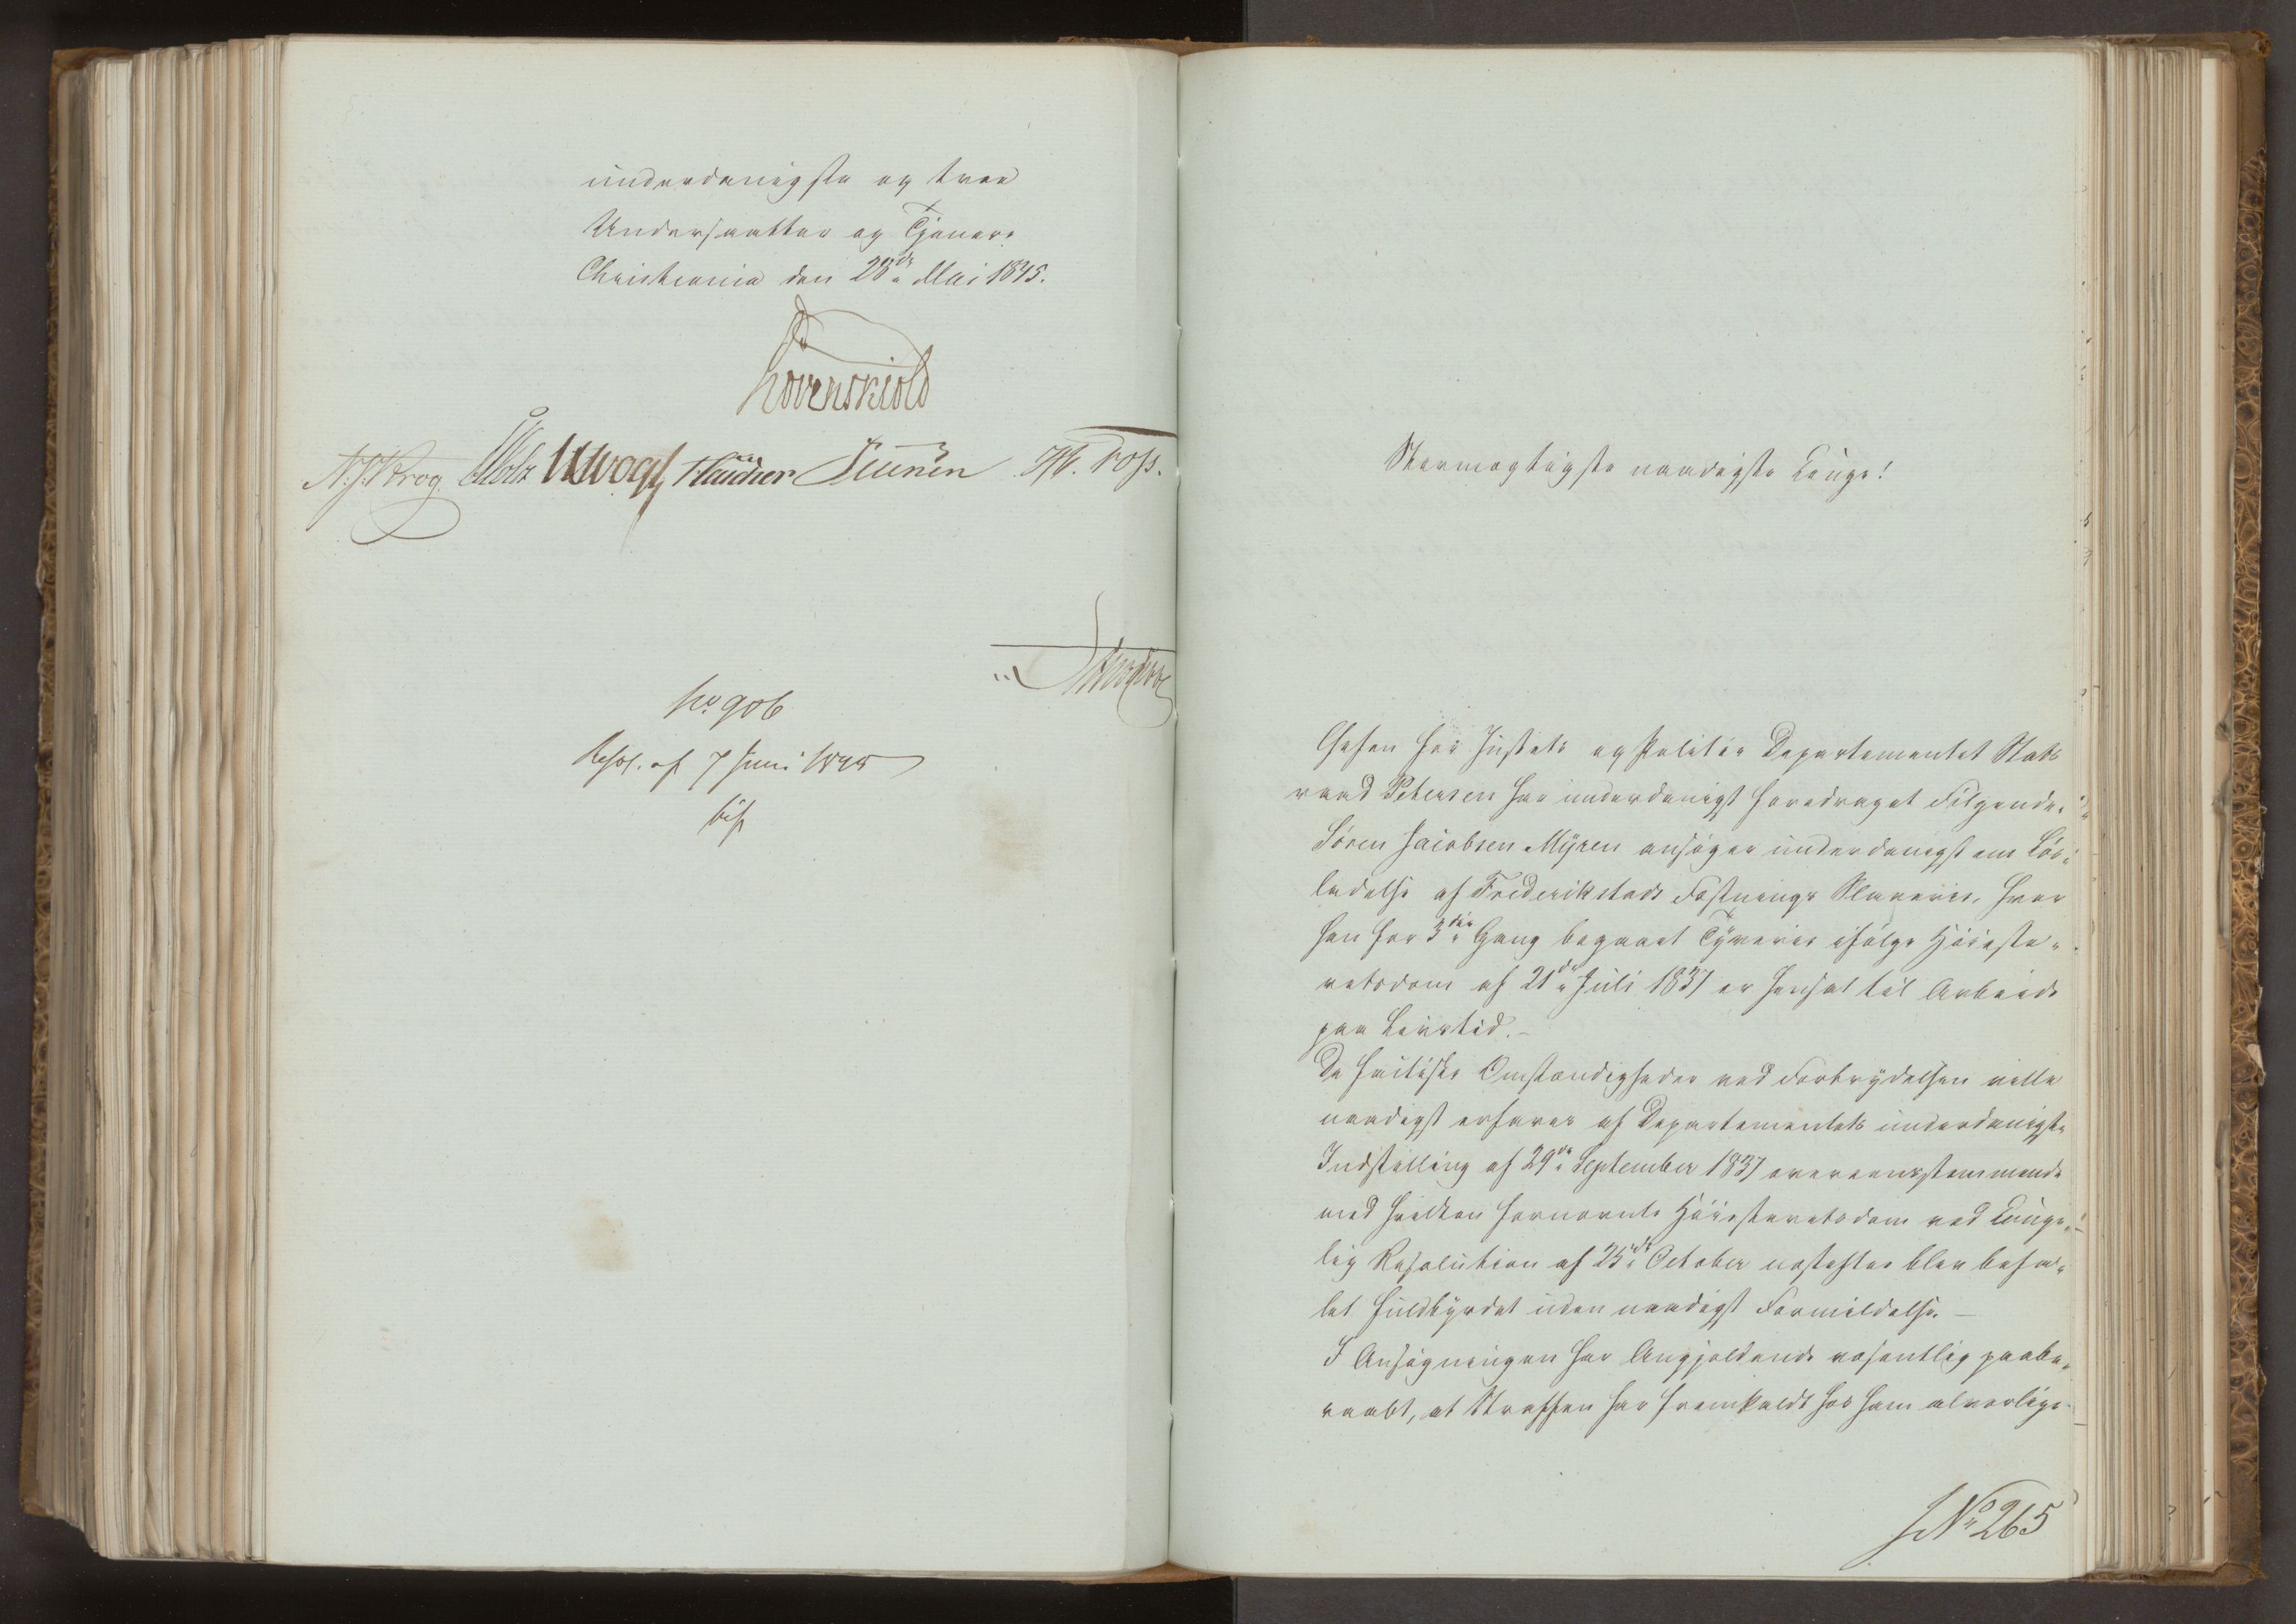 underdanigste og troe
Undersaatter og Tjenere.
Christiania den 28de Mai 1845.
Løvenskiold
N. J. Krog. Holst Vogt Hauchner Sunén H. Foss.
No 906
Resol. af 7 Juni 1845
Stormægtigste naadigste Konge!
Chefen for Justits og Politie Departementet Stats
raad Petersen har underdanigst foredraget Følgende:
Søren Jacobsen Myren ansøger underdanigst om Løs-
ladelse af Frederikstads Fæstnings Slaverie, hvor
han for 3die Gang begaaet Tyverie ifølge Høieste-
retsdom af 21de Juli 1837 er hensat til Arbeide
paa Livstid.-
De factiske Omstændigheder ved Forbrydelsen ville
naadigst erfares af Departementets underdanigste
Indstilling af 29de September 1837 overeensstemmende
med hvilken fornævnte Høiesteretsdom ved Konge-
lig Resolution af 25de October næstefter blev befa-
let fuldbyrdet uden naadigst Formildelse.-
I Ansøgningen har Angjeldende væsentlig paabe-
raabt, at Straffen har fremkaldt hos ham alvorlige
JNo 265